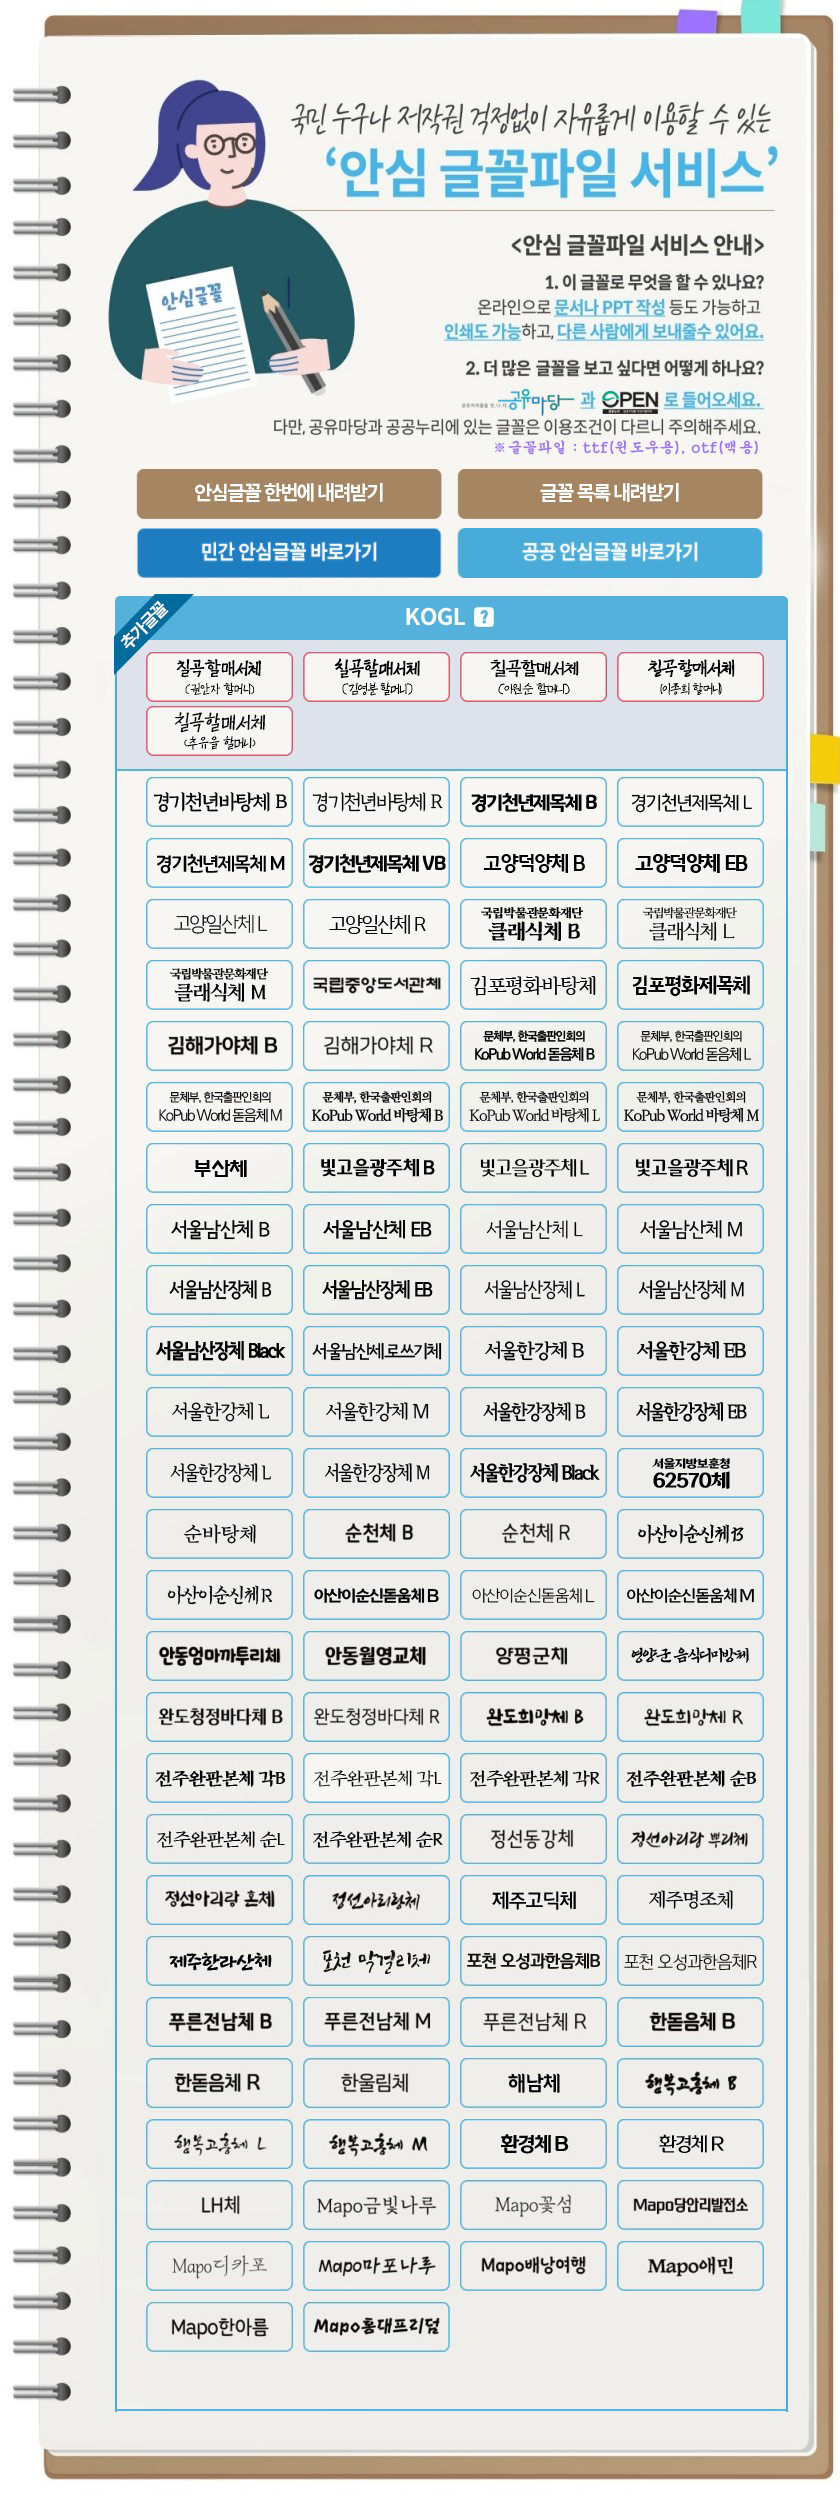 국민 누구나 저작권 걱정없이 자유롭게 이용할 수 있는
‘안심 글꼴파일 서비스’
안심글꼴
<안심 글꼴파일 서비스 안내>
1. 이 글꼴로 무엇을 할 수 있나요?
온라인으로 문서나 PPT 작성 등도 가능하고
인쇄도 가능하고, 다른 사람에게 보내줄수 있어요.
2. 더 많은 글꼴을 보고 싶다면 어떻게 하나요?
공유마당 과 OPEN 로 들어오세요.
다만, 공유마당과 공공누리에 있는 글꼴은 이용조건이 다르니 주의해주세요.
※글꼴파일 : ttf(윈도우용), otf(맥용)
안심글꼴 한번에 내려받기 글꼴 목록 내려받기
민간 안심글꼴 바로가기 공공 안심글꼴 바로가기
추가글꼴
KOGL ?
칠곡할매서체 칠곡할매서체 칠곡할매서체 칠곡할매서체
(권안자 할머니) (김영분 할머니) (이원순 할머니) (이종희 할머니)
칠곡할매서체
(추유을 할머니)
경기천년바탕체 B 경기천년바탕체 R 경기천년제목체 B 경기천년제목체 L
경기천년제목체 M 경기천년제목체 VB 고양덕양체 B 고양덕양체 EB
고양일산체 L 고양일산체 R 국립박물관문화재단 클래식체 B 국립박물관문화재단 클래식체 L
국립박물관문화재단 클래식체 M 국립중앙도서관체 김포평화바탕체 김포평화제목체
김해가야체 B 김해가야체 R 문체부, 한국출판인회의 KoPub World 돋음체 B 문체부, 한국출판인회의 KoPub World 돋음체 L
문체부, 한국출판인회의 KoPub World 돋음체 M 문체부, 한국출판인회의 KoPub World 바탕체 B 문체부, 한국출판인회의 KoPub World 바탕체 L 문체부, 한국출판인회의 KoPub World 바탕체 M
부산체 빛고을광주체 B 빛고을광주체 L 빛고을광주체 R
서울남산체 B 서울남산체 EB 서울남산체 L 서울남산체 M
서울남산장체 B 서울남산장체 EB 서울남산장체 L 서울남산장체 M
서울남산장체 Black 서울남산세로쓰기체 서울한강체 B 서울한강체 EB
서울한강체 L 서울한강체 M 서울한강장체 B 서울한강장체 EB
서울한강장체 L 서울한강장체 M 서울한강장체 Black 서울지방보훈청 62570체
순바탕체 순천체 B 순천체 R 아산이순신체 B
아산이순신체 R 아산이순신돋움체 B 아산이순신돋움체 L 아산이순신돋움체 M
안동엄마까투리체 안동월영교체 양평군체 영양군 음식디미방체
완도청정바다체 B 완도청정바다체 R 완도희망체 B 완도희망체 R
전주완판본체 각B 전주완판본체 각L 전주완판본체 각R 전주완판본체 순B
전주완판본체 순L 전주완판본체 순R 정선동강체 정선아리랑 뿌리체
정선아리랑 혼체 정선아리랑체 제주고딕체 제주명조체
제주한라산체 포천 막걸리체 포천 오성과한음체B 포천 오성과한음체R
푸른전남체 B 푸른전남체 M 푸른전남체 R 한돋음체 B
한돋음체 R 한울림체 해남체 행복고흥체 B
행복고흥체 L 행복고흥체 M 환경체 B 환경체 R
LH체 Mapo금빛나루 Mapo꽃섬 Mapo당안리발전소
Mapo디카포 Mapo마포나루 Mapo배낭여행 Mapo애민
Mapo한아름 Mapo홍대프리덤